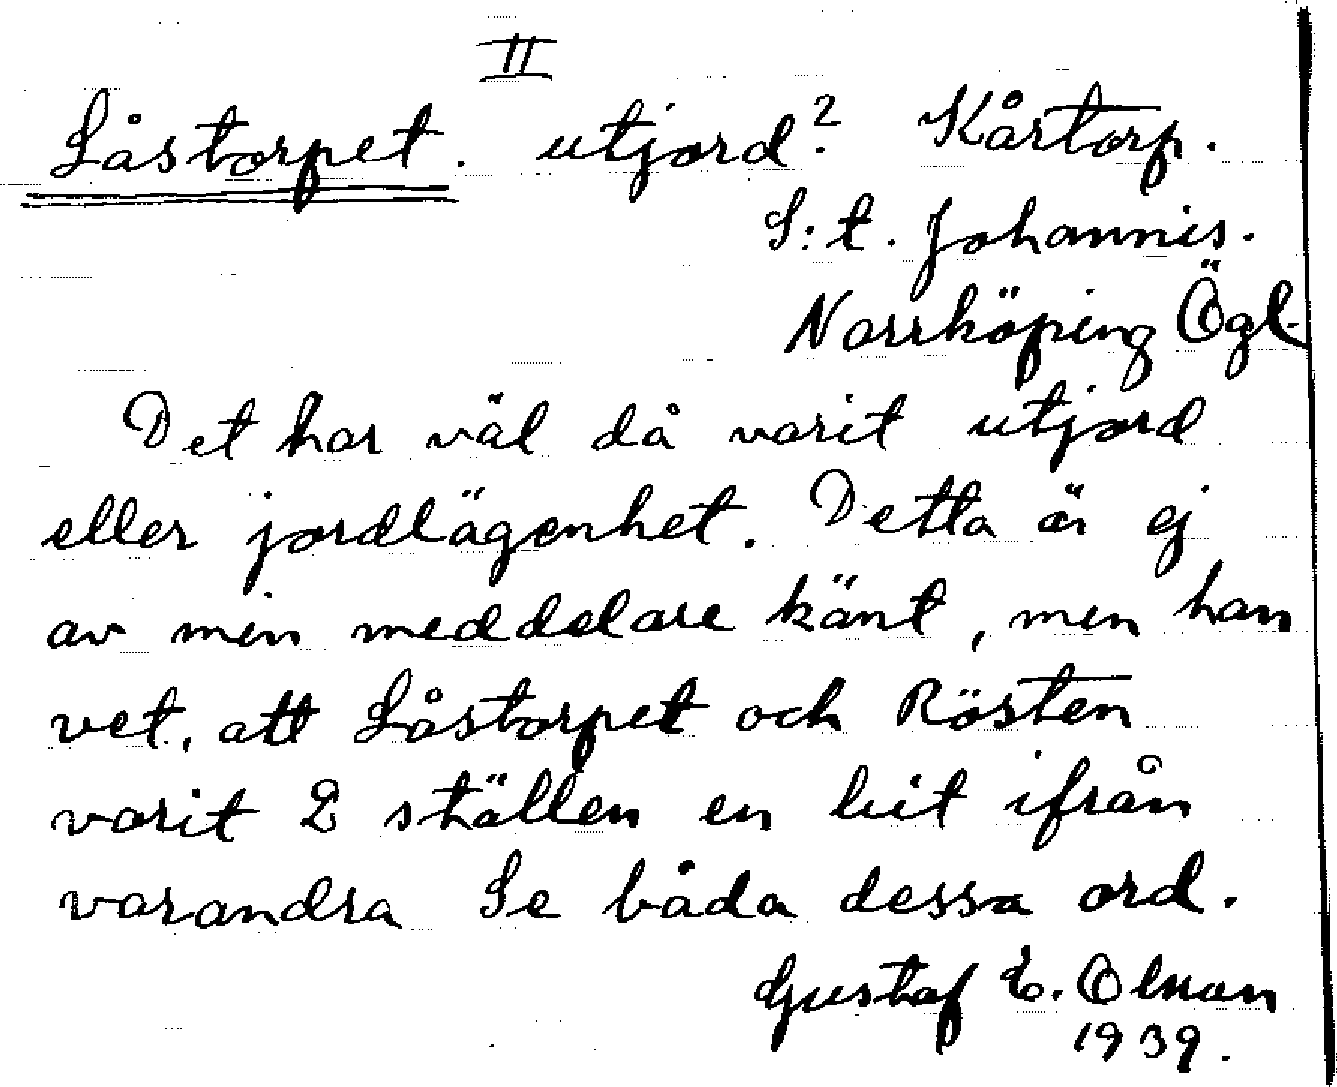 II
Låstorpet. utjord? Kårtorp.
S:t. Johannis.
Norrköping Ögl.
Det har väl då varit utjord
eller jordlägenhet. Detta är ej
av min meddelare känt, men han
vet, att Låstorpet och Rösten
varit 2 ställen en bit ifrån
varandra Se båda dessa ord.
Gustaf E. Olsson
1939.